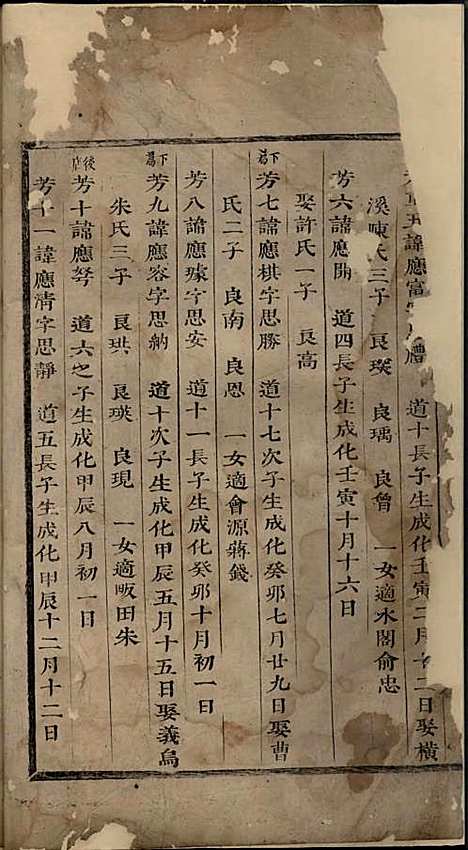 五諱應富字 禮 道十長子生成化壬寅二月十二日娶橫
溪陳氏三子 良璞 良瑀 良曾 一女適水閣俞忠
芳六諱應開 道四長子生成化壬寅十月十六日
娶許氏一子 良高
下蔿芳七諱應棋字思勝 道十七次子生成化癸卯七月廿九日娶曹
氏二子 良南 良恩 一女適會源蔣錢
芳八諱應璩字思安 道十一長子生成化癸卯十月初一日
下蔿芳九諱應容字思納 道十次子生成化甲辰五月十五日娶義烏
朱氏三子 良珙 良瑛 良現 一女適畈田朱
後店芳十諱應努 道六之子生成化甲辰八月初一日
芳十一諱應清字思靜 道五長子生成化甲辰十二月十二日